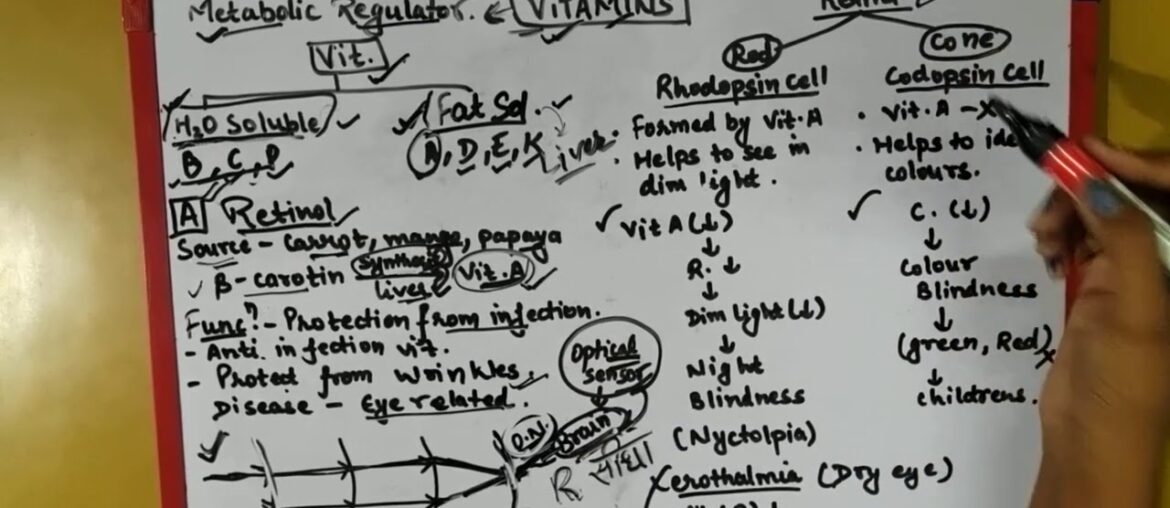 Metabolic Regulator. ← VITAMINS
Vit.
H2O Soluble
B, C, P
Fat Sol
A, D, E, K Liver
A Retinol
Source - Carrot, mango, papaya
β- carotin Synthesis Vit. A
liver
Func? - Protection from infection.
- Anti. infection vit.
- Protect from Wrinkles.
Disease - Eye related.
Optical
sensor
O.N.
Brain
R
Retina
Rod
Rhodopsin Cell
• Formed by Vit. A
• Helps to see in
dim light.
Vit A (↓)
↓
R. ↓
↓
Dim light (↓)
↓
Night
Blindness
(Nyctolpia)
Xerothalmia (Dry eye)
Cone
Codopsin Cell
• Vit. A - X
• Helps to ide
colours.
C. (↓)
↓
Colour
Blindness
↓
(green, Red)
↓
childrens.